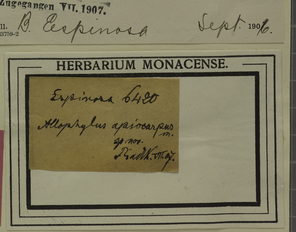 Zugegangen VII. 1907.
ll. O. Espinosa Sept. 1906.
HERBARIUM MONACENSE.
Espinosa 6480
Allophylus apiocarpus
m.
sp. nov.
Radlk.